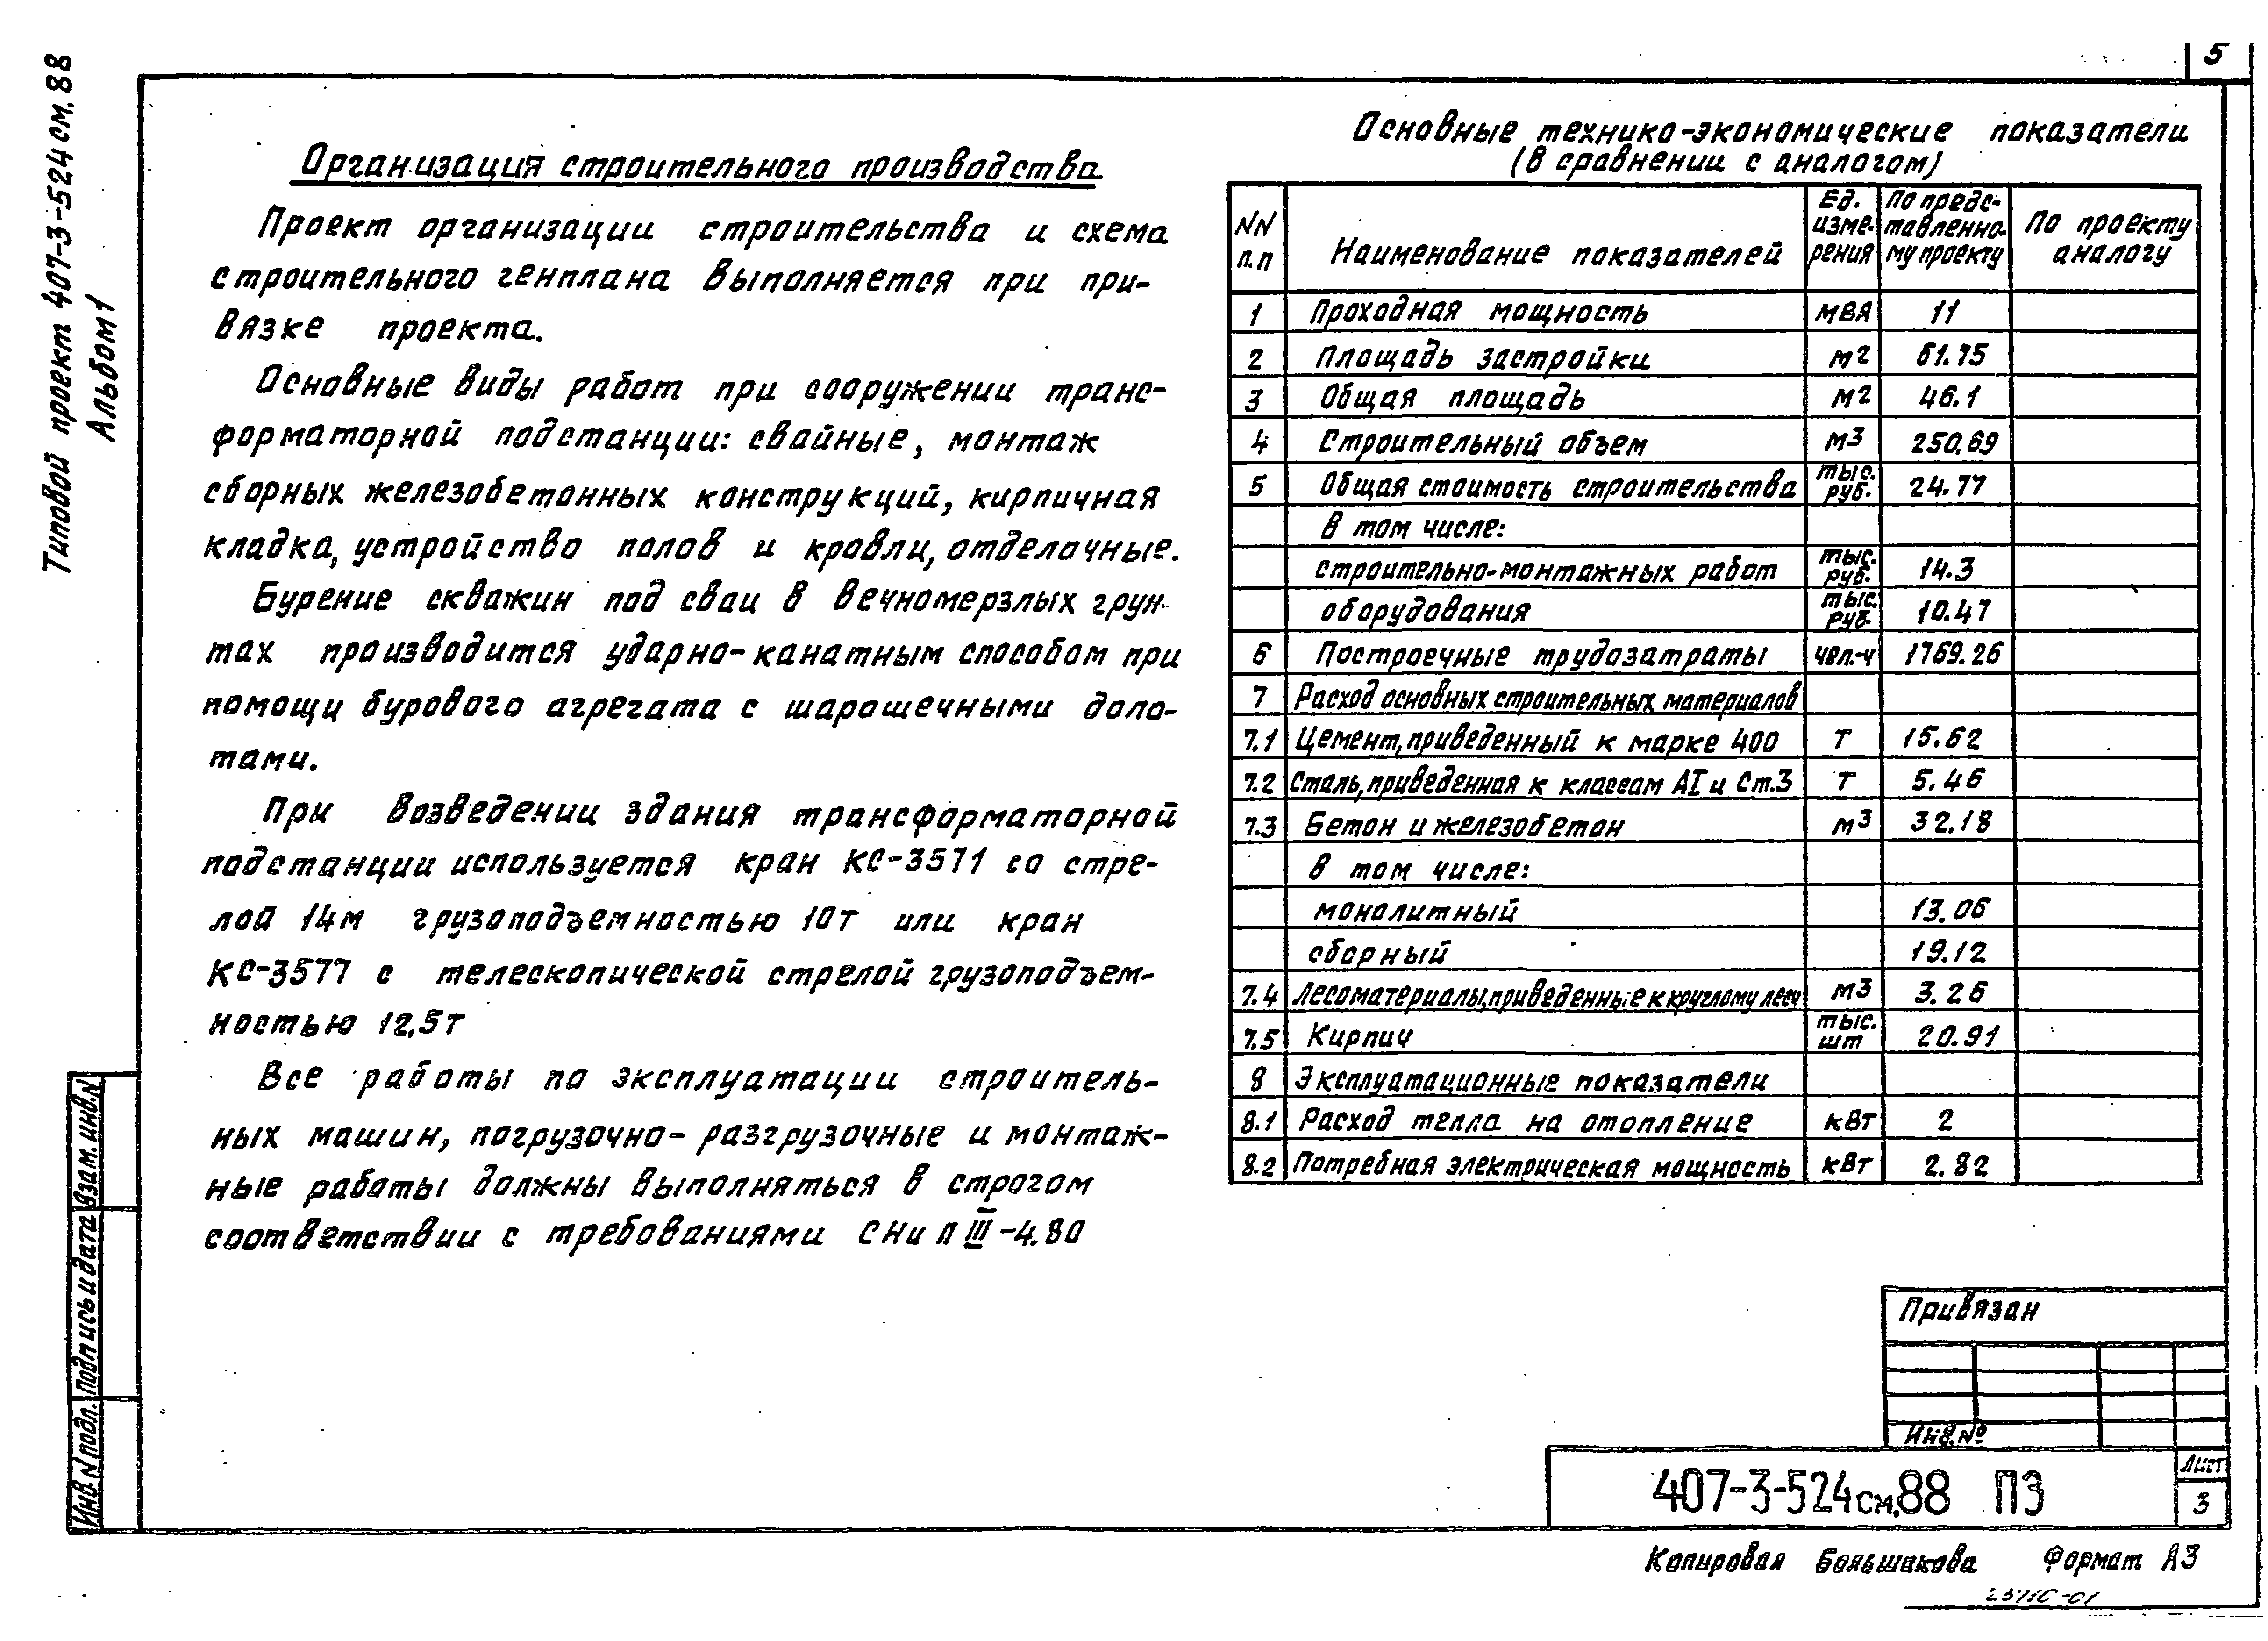 5
Типовой проект 407-3-524см.88
Альбом 1
Организация строительного производства
Проект организации строительства и схема
строительного генплана выполняется при при-
вязке проекта.
Основные виды работ при сооружении транс-
форматорной подстанции: свайные, монтаж
сборных железобетонных конструкций, кирпичная
кладка, устройство полов и кровли, отделочные.
Бурение скважин под сваи в вечномерзлых грун-
тах производится ударно-канатным способом при
помощи бурового агрегата с шарошечными доло-
тами.
При возведении здания трансформаторной
подстанции используется кран КС-3571 со стре-
лой 14м грузоподъемностью 10т или кран
КС-3577 с телескопической стрелой грузоподъем-
ностью 12,5т
Все работы по эксплуатации строитель-
ных машин, погрузочно-разгрузочные и монтаж-
ные работы должны выполняться в строгом
соответствии с требованиями СНиП III-4.80
Основные технико-экономические показатели
(в сравнении с аналогом)
NN п.п Наименование показателей Ед. изме-рения По предс-тавленно-му проекту По проекту аналогу
1 Проходная мощность МВА 11
2 Площадь застройки м2 61.75
3 Общая площадь м2 46.1
4 Строительный объем м3 250.69
5 Общая стоимость строительства тыс. руб. 24.77
в том числе:
строительно-монтажных работ тыс. руб. 14.3
оборудования тыс. руб. 10.47
6 Построечные трудозатраты чел.-ч 1769.26
7 Расход основных строительных материалов
7.1 Цемент, приведенный к марке 400 Т 15.62
7.2 Сталь, приведенная к классам АI и Ст.3 Т 5.46
7.3 Бетон и железобетон м3 32.18
в том числе:
монолитный 13.06
сборный 19.12
7.4 Лесоматериалы, приведенные к круглому лесу м3 3.26
7.5 Кирпич тыс. шт 20.91
8 Эксплуатационные показатели
8.1 Расход тепла на отопление кВт 2
8.2 Потребная электрическая мощность кВт 2.82
Инв. N подл. Подпись и дата Взам. инв. N
Привязан
Инв. №
407-3-524см.88 ПЗ
Лист
3
Копировал Большакова Формат А3